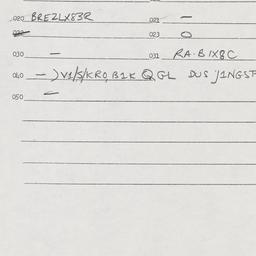 020 BREZLX83R 021 —
023 O
030 — 031 RA·BIX8C
040 —)V1/S/KRO,B1K QGL DUS
050 —